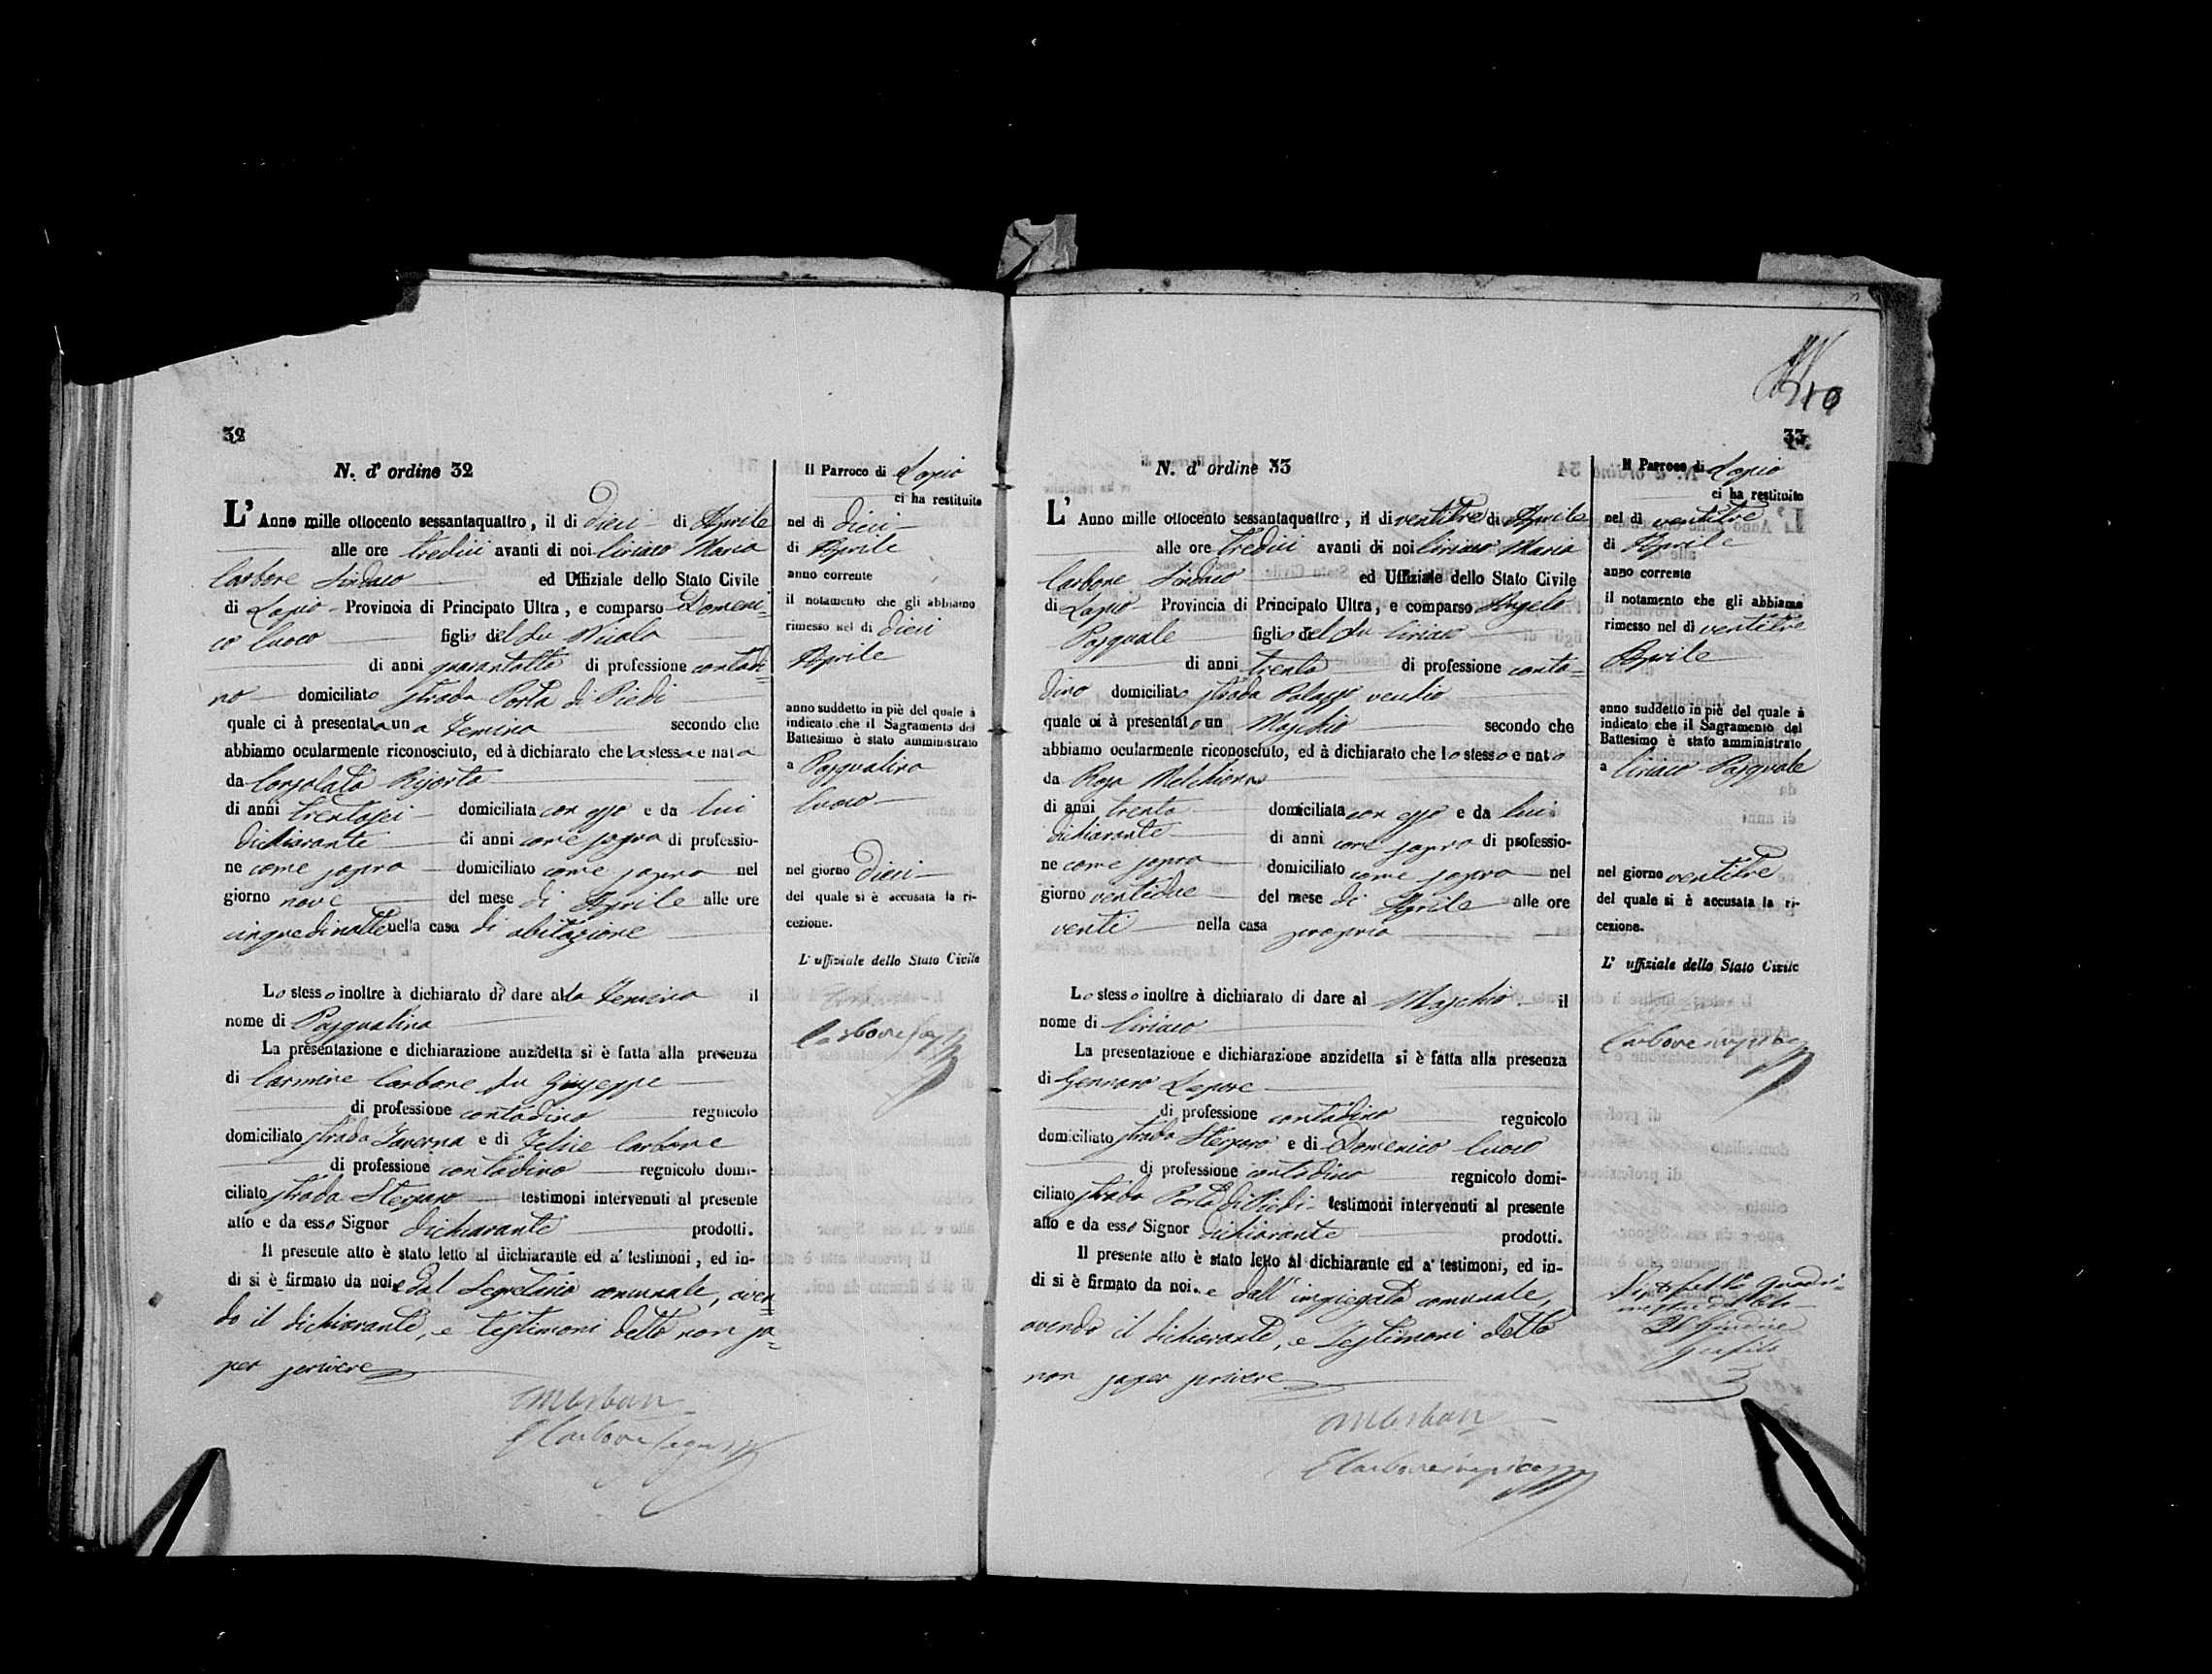 32
N. d' ordine 32
L' Anno mille ottocento sessantaquattro, il di dieci di Aprile
alle ore tredici avanti di noi Ciriaco Maria
Carbone Sindaco ed Uffiziale dello Stato Civile
di Lapio Provincia di Principato Ultra, e comparso Domeni-
co Cuoco figlio del fu Nicola
di anni quarantotto di professione contadi-
no domiciliato strada Porta di Piedi
quale ci à presentata una Femina secondo che
abbiamo ocularmente riconosciuto, ed à dichiarato che la stessa e nata
da Consolata
di anni trentasei domiciliata con esso e da lui
dichiarante di anni come sopra di professio-
ne come sopra domiciliato come sopra nel
giorno nove del mese di Aprile alle ore
cinque di notte nella casa di abitazione
Lo stesso inoltre à dichiarato di dare alla Femina il
nome di Pasqualina
La presentazione e dichiarazione anzidetta si è fatta alla presenza
di Carmine Carbone fu Giuseppe
di professione contadino regnicolo
domiciliato strada Taverna e di Felice Carbone
di professione contadino regnicolo domi-
ciliato strada testimoni intervenuti al presente
atto e da esso Signor dichiarante prodotti.
Il presente atto è stato letto al dichiarante ed a' testimoni, ed in-
di si è firmato da noi e dal Segretario comunale, aven-
do il dichiarante, e testimoni detto non sa-
per scrivere
Il Parroco di Lapio
ci ha restituito
nel di dieci
di Aprile
anno corrente
il notamento che gli abbiamo
rimesso nel di dieci
Aprile
anno suddetto in piè del quale à
indicato che il Sagramento del
Battesimo è stato amministrato
a Pasqualina
Cuoco
nel giorno dieci
del quale si è accusata la ri-
cezione.
L' uffiziale dello Stato Civile
Carbone
33
N. d' ordine 33
L' Anno mille ottocento sessantaquattro, il di ventitre di Aprile
alle ore tredici avanti di noi Ciriaco Maria
Carbone Sindaco ed Uffiziale dello Stato Civile
di Lapio Provincia di Principato Ultra, e comparso Angelo
Pasquale figlio del fu Ciriaco
di anni trenta di professione conta-
dino domiciliato strada Palazzo vecchio
quale ci à presentato un Maschio secondo che
abbiamo ocularmente riconosciuto, ed à dichiarato che lo stesso e nato
da Rosa Melchionna
di anni trenta domiciliata con esso e da lui
dichiarante di anni come sopra di professio-
ne come sopra domiciliato come sopra nel
giorno ventidue del mese di Aprile alle ore
venti nella casa propria
Lo stesso inoltre à dichiarato di dare al Maschio il
nome di Ciriaco
La presentazione e dichiarazione anzidetta si è fatta alla presenza
di Gennaro Lepore
di professione contadino regnicolo
domiciliato strada e di Domenico Cuoco
di professione contadino regnicolo domi-
ciliato strada Porta di Piedi testimoni intervenuti al presente
atto e da esso Signor dichiarante prodotti.
Il presente atto è stato letto al dichiarante ed a' testimoni, ed in-
di si è firmato da noi e dall' impiegato comunale,
avendo il dichiarante, e Testimoni detto
non saper scrivere
Il Parroco di Lapio
ci ha restituito
nel di ventitre
di Aprile
anno corrente
il notamento che gli abbiamo
rimesso nel di ventitre
Aprile
anno suddetto in piè del quale à
indicato che il Sagramento del
Battesimo è stato amministrato
a Ciriaco Pasquale
nel giorno ventitre
del quale si è accusata la ri-
cezione.
L' uffiziale dello Stato Civile
Carbone
Il Giudice